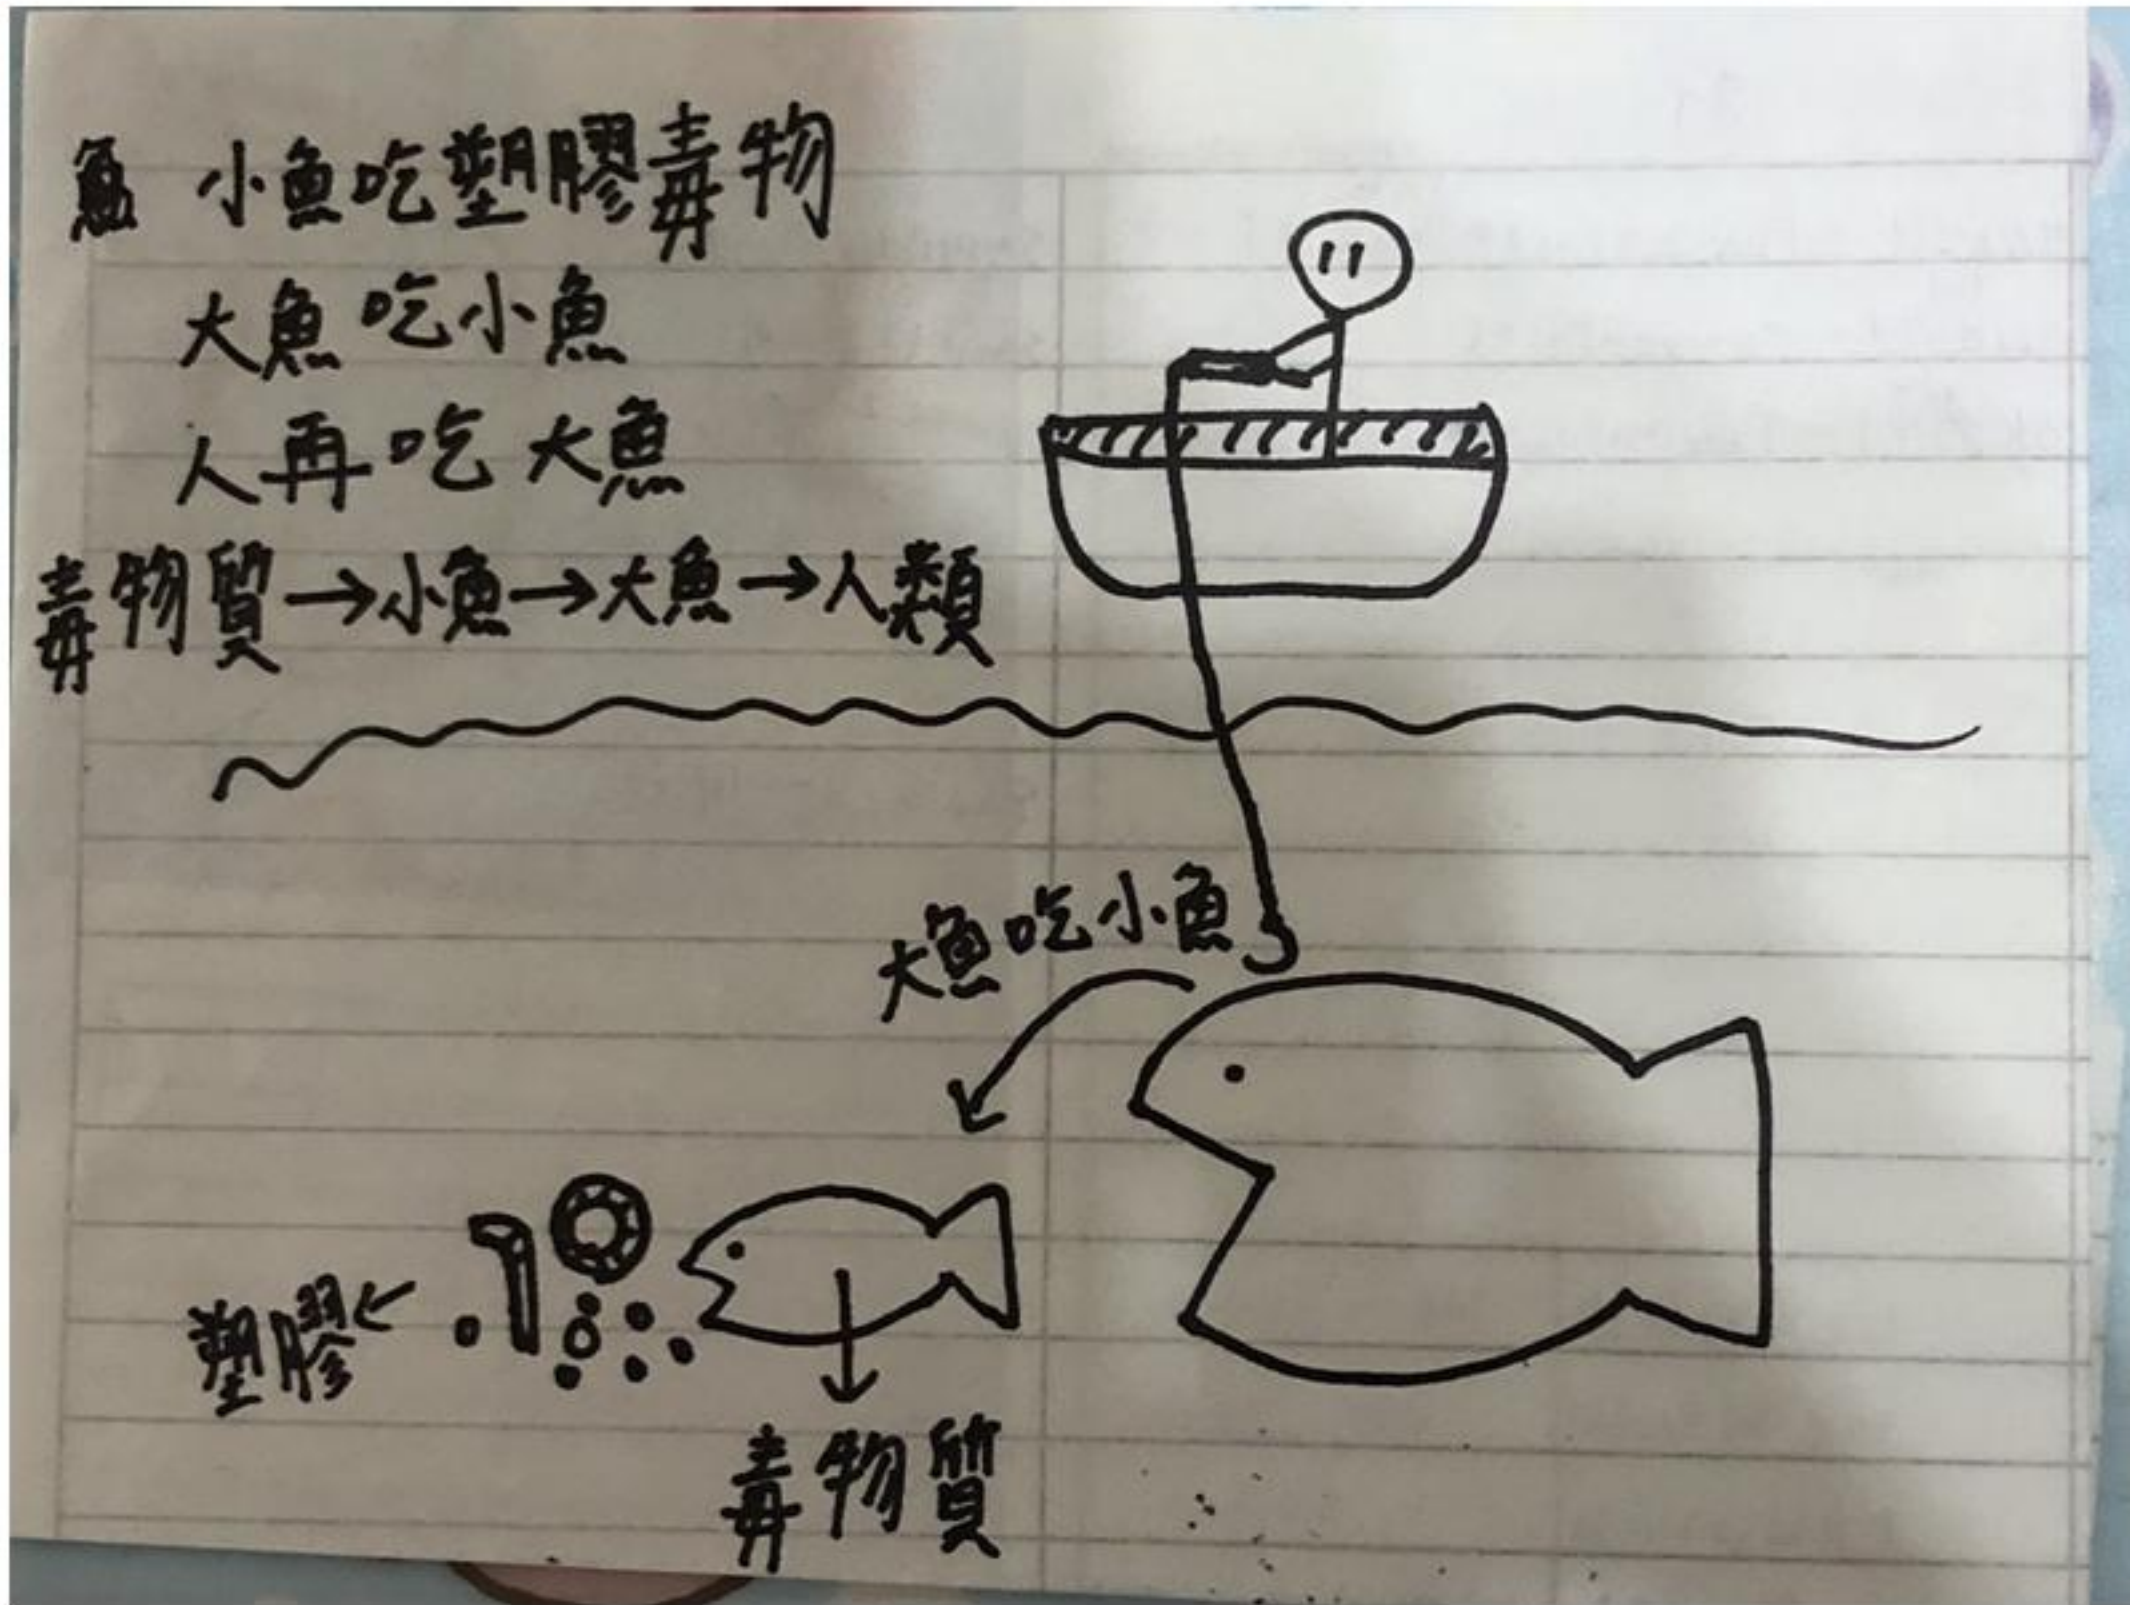 小魚吃塑膠毒物
大魚吃小魚
人再吃大魚
毒物質→小魚→大魚→人類
大魚吃小魚
塑膠←
毒物質